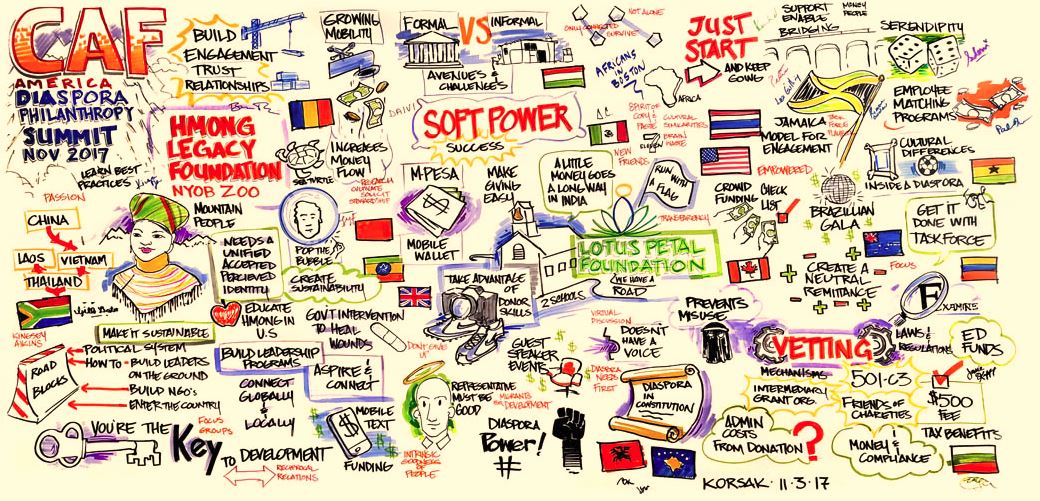 CAF
AMERICA
DIASPORA
PHILANTHROPY
SUMMIT
NOV 2017
LEARN BEST
PRACTICES
BUILD
ENGAGEMENT
TRUST
RELATIONSHIPS
GROWING
MOBILITY
FORMAL VS INFORMAL
AVENUES &
CHALLENGES
ONLY CONNECTED
SURVIVE
NOT ALONE
AFRICANS
IN
BOSTON
AFRICA
JUST
START
AND KEEP
GOING
SUPPORT
ENABLE
BRIDGING
MONEY
PEOPLE
SERENDIPITY
EMPLOYEE
MATCHING
PROGRAMS
JAMAICA
MODEL FOR
ENGAGEMENT
CULTURAL
DIFFERENCES
INSIDE A DIASPORA
HMONG
LEGACY
FOUNDATION
NYOB ZOO
SEA TURTLE
INCREASES
MONEY
FLOW
SOFT POWER
SUCCESS
SPIRIT OF
COPY &
PASTE
CULTURAL
SIMILARITIES
BRAIN
WASTE
NEW
FRIENDS
M-PESA
MOBILE
WALLET
MAKE
GIVING
EASY
A LITTLE
MONEY GOES
A LONG WAY
IN INDIA
RUN
WITH
A FLAG
TRANSPARENCY
EMPOWERED
CROWD
FUNDING
CHECK
LIST
BRAZILIAN
GALA
GET IT
DONE WITH
TASKFORCE
PASSION
CHINA
LAOS
VIETNAM
THAILAND
MOUNTAIN
PEOPLE
NEEDS A
UNIFIED
ACCEPTED
PERCIEVED
IDENTITY
POP THE
BUBBLE
CREATE
SUSTAINABILITY
LOTUS PETAL
FOUNDATION
WE HAVE A
ROAD
2 SCHOOLS
TAKE ADVANTAGE
OF
DONOR
SKILLS
CREATE A
NEUTRAL
REMITTANCE
FOCUS
EXAMINE
KINGSLEY
AIKINS
MAKE IT SUSTAINABLE
EDUCATE
HMONG IN
U.S
GOV'T INTERVENTION
TO HEAL
WOUNDS
DON'T GIVE
UP
GUEST
SPEAKER
EVENTS
VIRTUAL
DISCUSSION
DOESN'T
HAVE A
VOICE
PREVENTS
MISUSE
VETTING
LAWS &
REGULATIONS
ED
FUNDS
ROAD
BLOCKS
POLITICAL SYSTEM
HOW TO - BUILD LEADERS
ON THE GROUND
BUILD NGO's
ENTER THE COUNTRY
BUILD LEADERSHIP
PROGRAMS
CONNECT
GLOBALLY
&
LOCALLY
ASPIRE &
CONNECT
REPRESENTATIVE
MUST BE
GOOD
MIGRANTS
DEVELOPMENT
DIASPORA
NEEDS
FIRST
DIASPORA
IN
CONSTITUTION
MECHANISMS
INTERMEDIARY
GRANT ORG
501-C3
FRIENDS OF
CHARITIES
$500
FEE
YOU'RE THE Key
TO DEVELOPMENT
FOCUS
GROUPS
RECIPROCAL
RELATIONS
MOBILE
TEXT
FUNDING
INTRINSIC
GOODNESS
OF
PEOPLE
DIASPORA
Power!
#
ADMIN
COSTS
FROM DONATION?
MONEY &
COMPLIANCE
TAX BENEFITS
KORSAK · 11·3·17